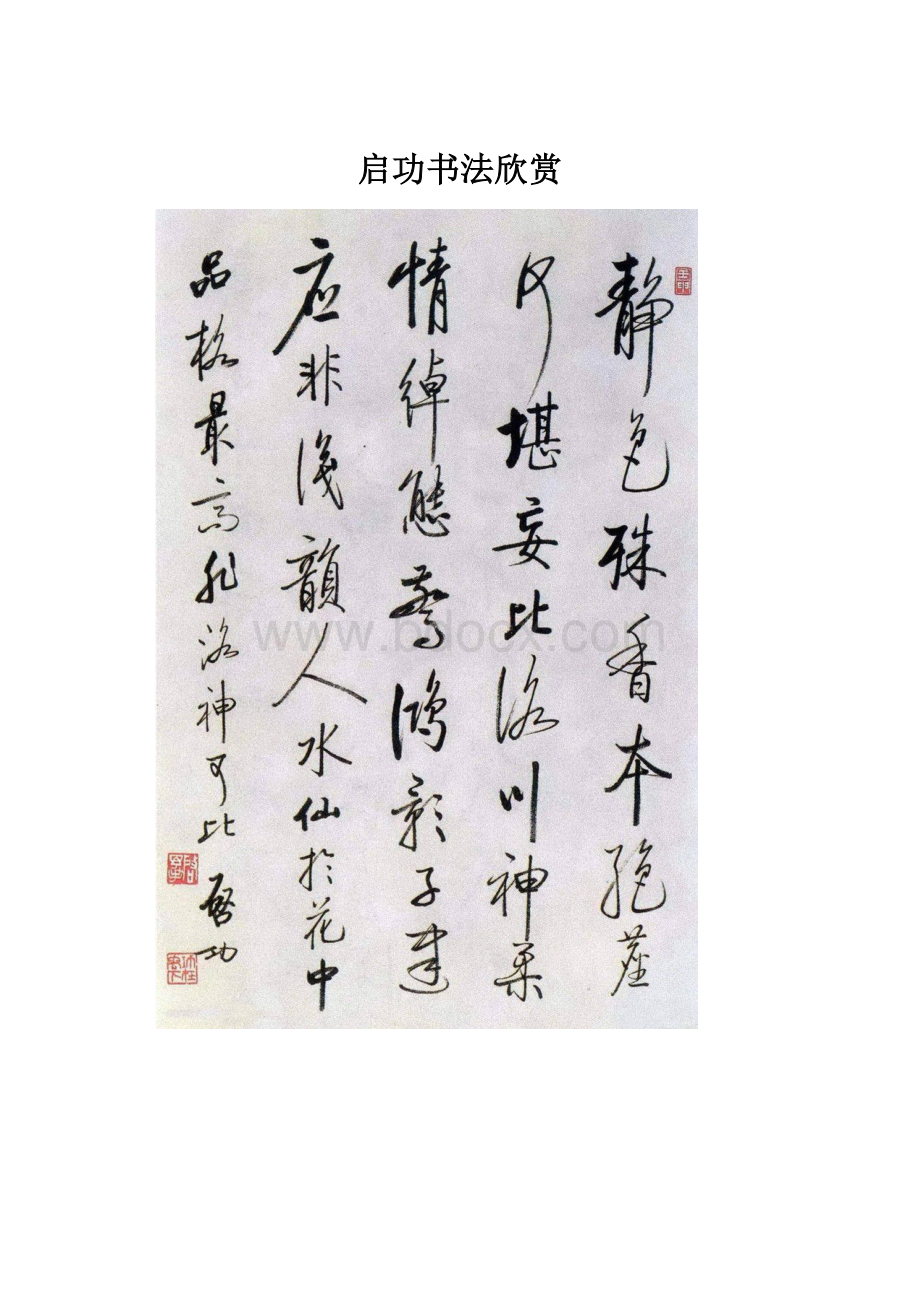 启功书法欣赏
静色殊香本絕塵
何堪妄比洛川神柔
情綽態驚鴻影子建
应非淺韻人水仙於花中
品格最高非洛神可比 啓功
www.bdocx.com